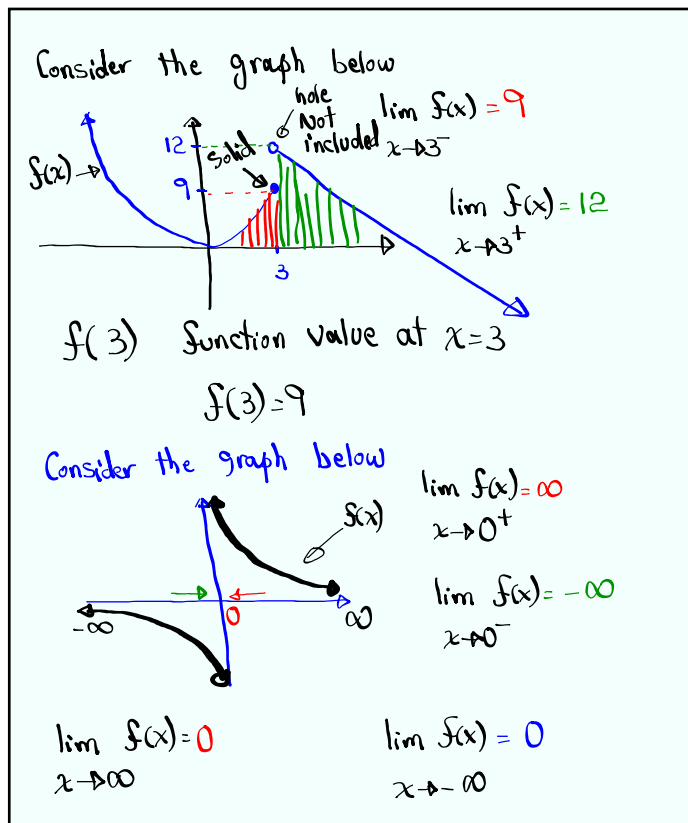 Consider the graph below
hole
Not
included
lim f(x) = 9
x→3⁻
12
solid
f(x)
9
lim f(x) = 12
x→3⁺
3
f(3) function value at x=3
f(3)=9
Consider the graph below
lim f(x)=∞
x→0⁺
f(x)
lim f(x)=-∞
x→0⁻
-∞
0
∞
lim f(x)=0
x→∞
lim f(x) = 0
x→-∞